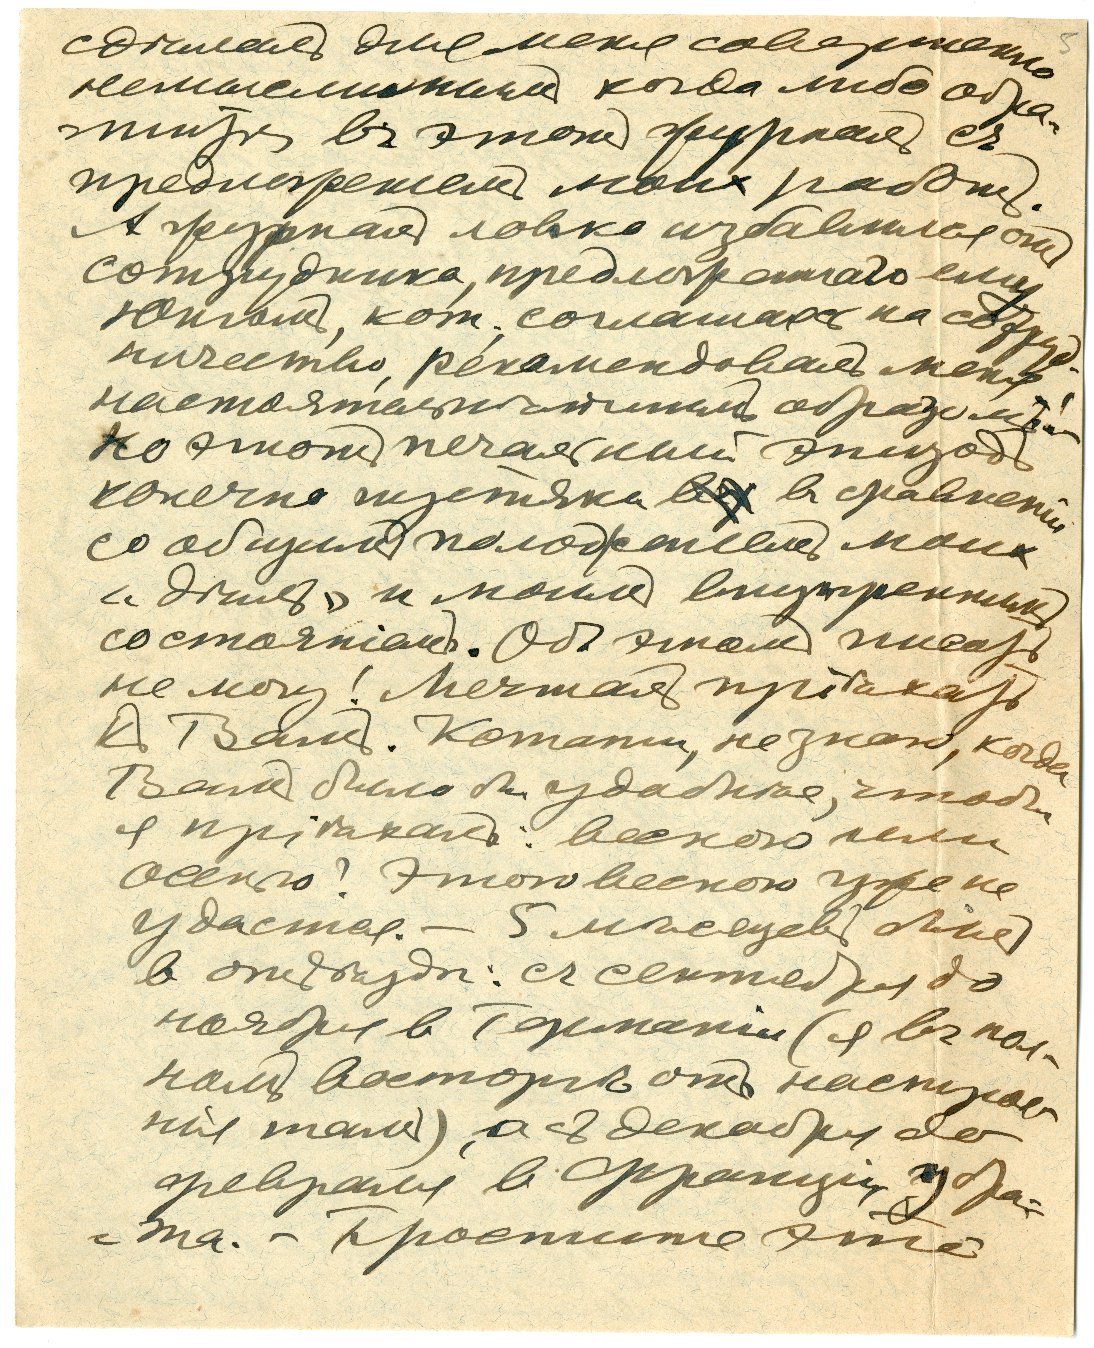 5
сдѣлалъ для меня совершенно
немыслимымъ когда либо обра-
титься въ этотъ журналъ съ
предложеніемъ моихъ работъ.
А журналъ ловко избавился отъ
сотрудника, предложеннаго ему
Юнгомъ, кот. соглашаясь на сотруд-
ничество, рекомендовалъ меня
настоятельнѣйшимъ образомъ!
Но этотъ печальный эпизодъ
конечно пустяки въ сравненіи
со общимъ положеніемъ моихъ
„дѣлъ" и моимъ внутреннимъ
состояніемъ. Объ этомъ писать
не могу! Мечталъ пріѣхать
къ Вамъ. Кстати, не знаю, когда
Вамъ было бы удобнѣе, чтобы
я пріѣхалъ: весною или
осенью? Этою весною уже не
удастся. — 5 мѣсяцевъ былъ
в отъѣздѣ: съ сентября до
ноября в Германіи (я въ пол-
номъ восторгѣ отъ настрое-
нія тамъ), а съ декабря до
февраля в Франціи у бра-
та. — Простите это